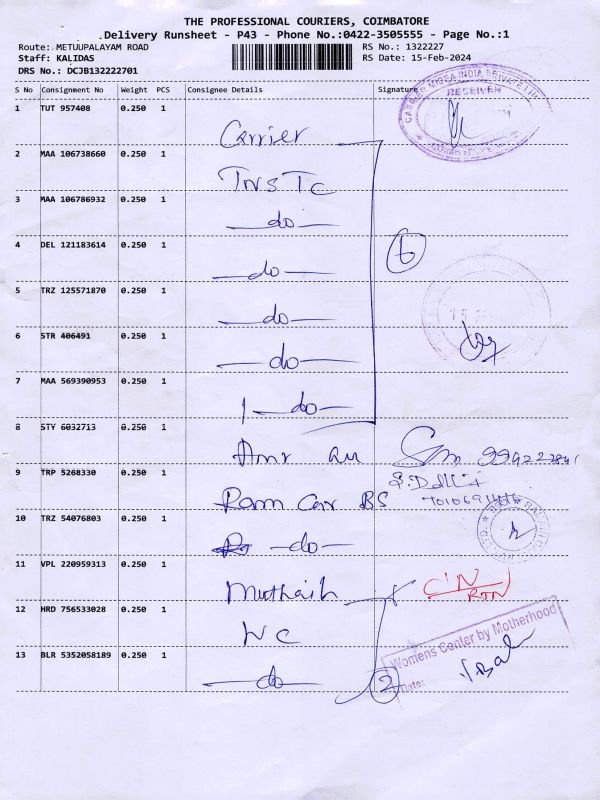 THE PROFESSIONAL COURIERS, COIMBATORE
Delivery Runsheet - P43 - Phone No.:0422-3505555 - Page No.:1
Route: METUUPALAYAM ROAD
RS No.: 1322227
Staff: KALIDAS
RS Date: 15-Feb-2024
DRS No.: DCJB132222701
S No Consignment No Weight PCS Consignee Details Signature
CARRIER MIDEA INDIA PRIVATE LIMITED
RECEIVER
1 TUT 957408 0.250 1 Carrier
2 MAA 106738660 0.250 1 TNSTC
3 MAA 106786932 0.250 1 do
4 DEL 121183614 0.250 1 do
6
5 TRZ 125571870 0.250 1 do
15 FEB
6 STR 406491 0.250 1 do
7 MAA 569390953 0.250 1 do
8 STY 6032713 0.250 1
9 TRP 5268330 0.250 1 Ram Car BS
10 TRZ 54076803 0.250 1 do
11 VPL 220959313 0.250 1 Muthaih
C/N
RTN
12 HRD 756533028 0.250 1 WC
Womens Center by Motherhood
13 BLR 5352058189 0.250 1 do
2
Date: